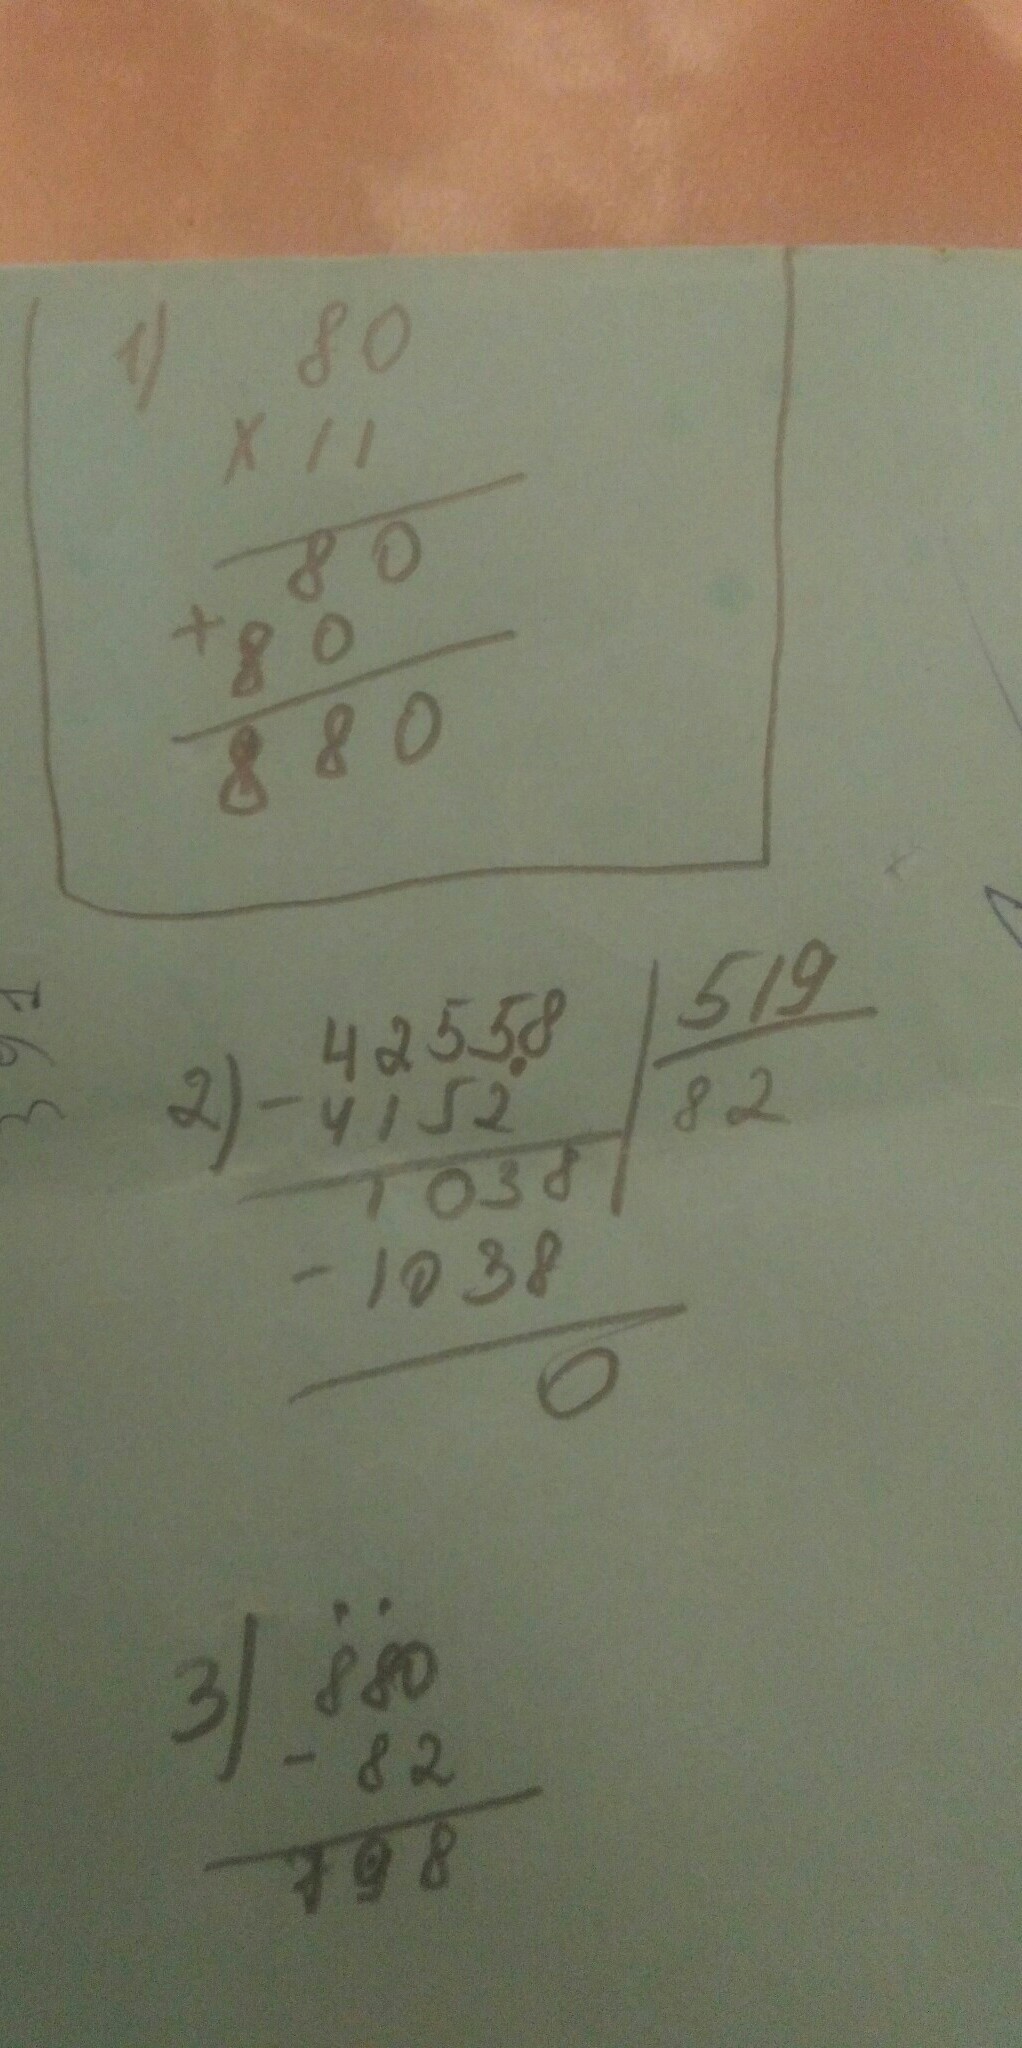 1) 80
x 11
80
+ 80
880
2) - 42558 | 519
4152 82
1038
- 1038
0
3) 880
- 82
798
391